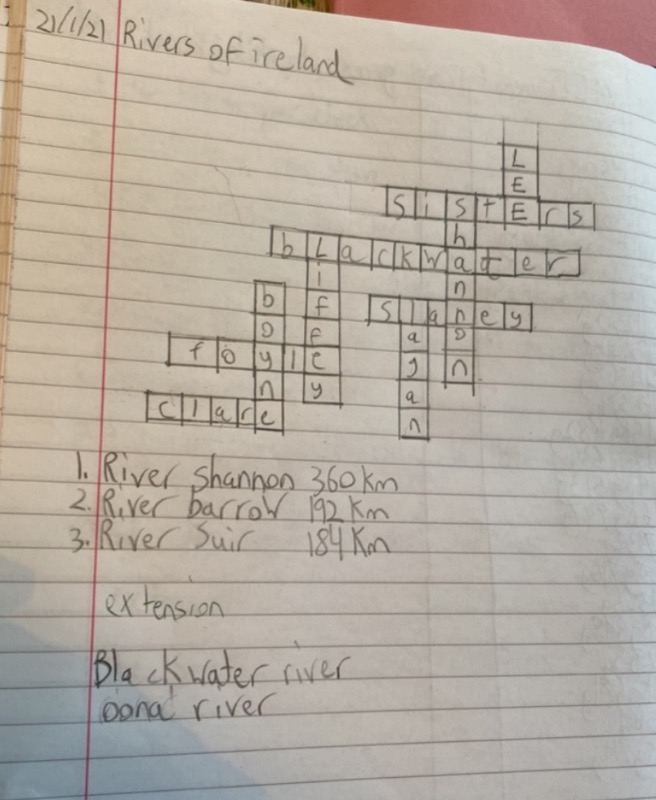 21/1/21 Rivers of ireland
LEE
SiStErs
shannon
bLackwater
Liffey
boyne
Slaney
lagan
foyle
Clare
1. River Shannon 360 km
2. River barrow 192 Km
3. River Suir 184 Km
extension
Blackwater river
oona river